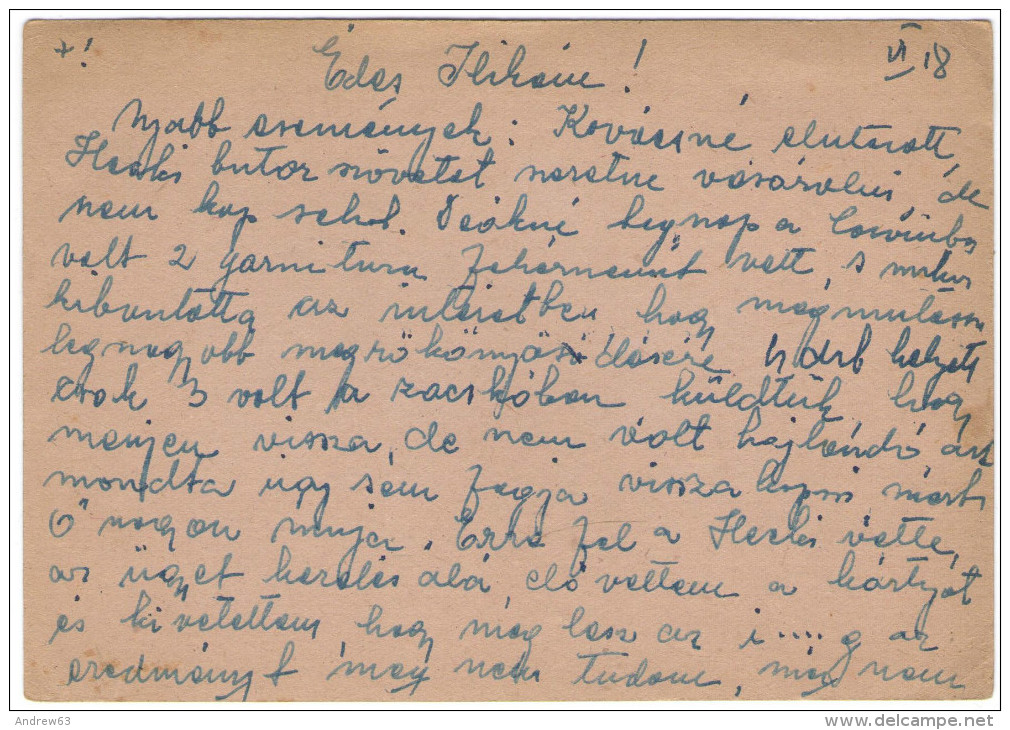 +!
Édes Ilikém!
VI 18
Ujabb események: Kovácsné elutazott,
Hecki butor szövetet szeretne vásárolni, de
nem kap sehol. Deákné tegnap a Corvinba
volt 2 garnitura fehérneműt vett, s mikor
kibontotta az intézetben hogy megmutassa
legnagyobb megrökönyösödésére 4 darb helyett
csak 3 volt a zacskóban, küldtük hogy
menjen vissza, de nem volt hajlandó azt
mondta úgy sem fogja vissza kapni mert
Ő nagon muja. Erre fel a Hecki vette,
az ügyet kezelés alá, elő vettem a kártyát
és ki vetettem, hogy meg lesz az i....g az
eredményt még nem tudom, még nem
Andrew63
www.delcampe.net